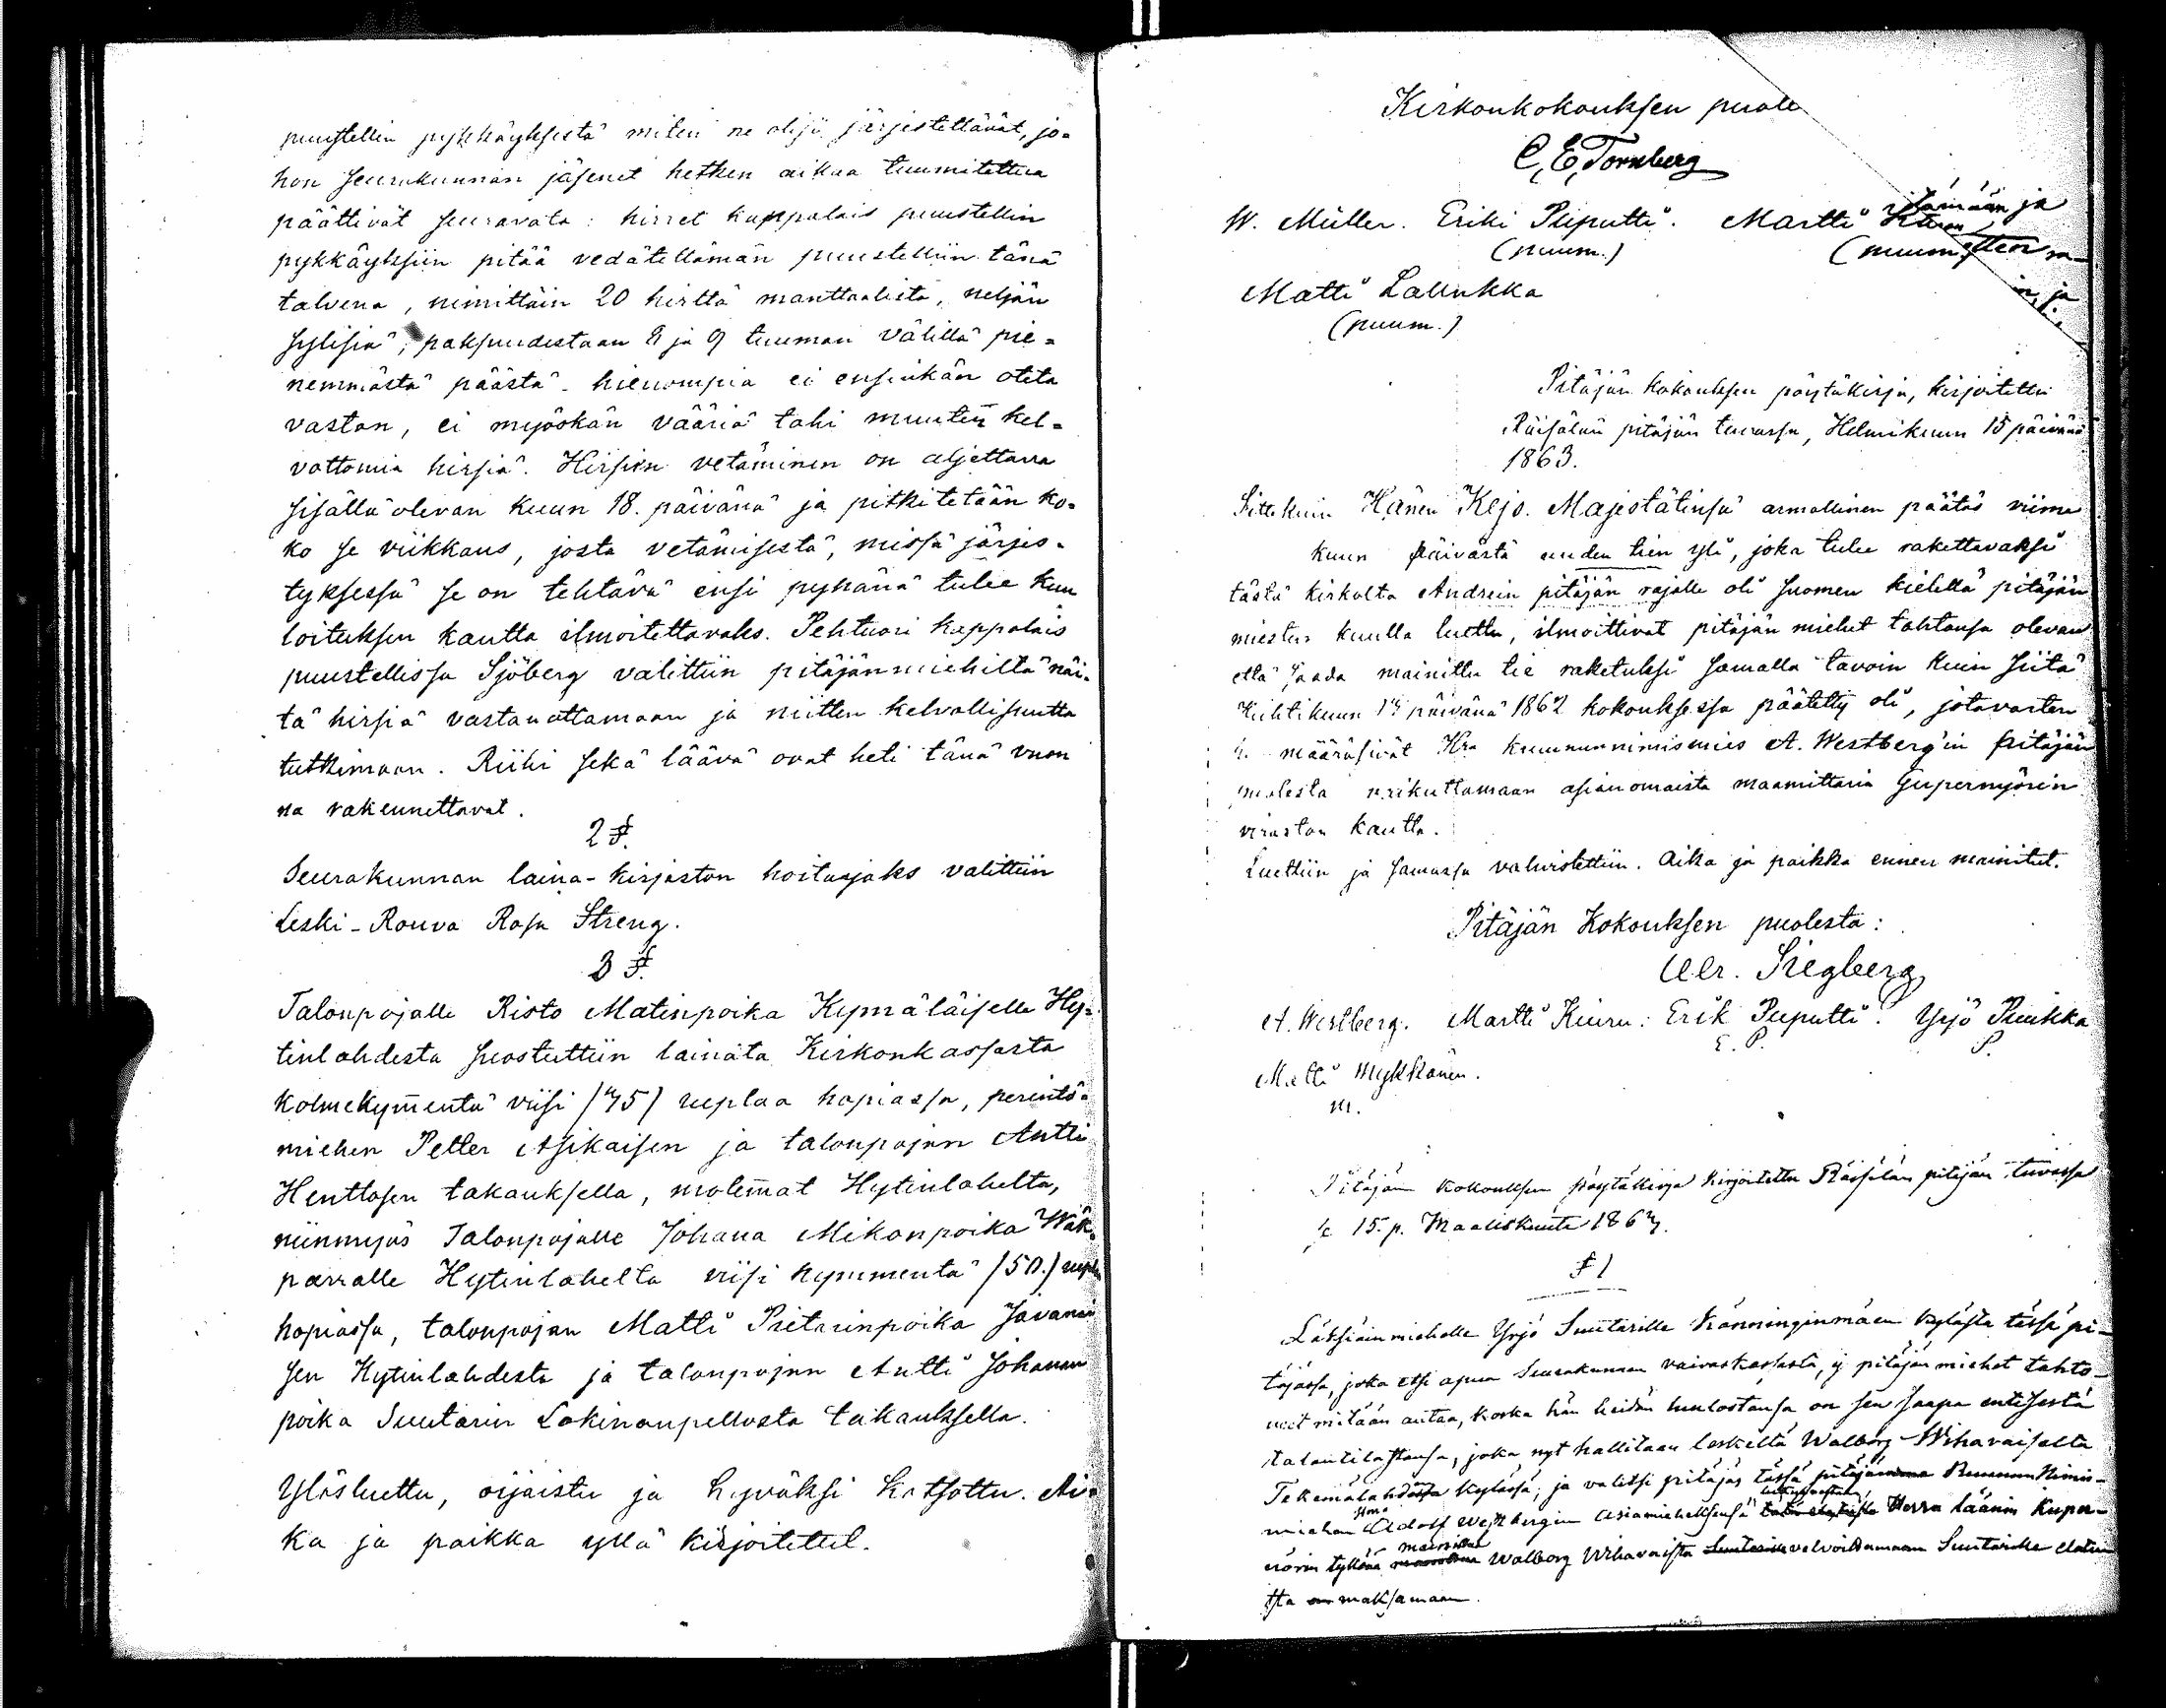 puustellin pykkäyksestä miten ne olisi järjestettävät, jo=
hon seurakunnan jäsenet hetken aikaa tuumitettua
päättivät seuravata: hirret kappalais puustellin
pykkäyksiin pitää vedätettämän puustelliin tänä
talvena, nimittäin 20 hirttä manttaalista, neljän
sylisiä, paksuudestaan 8 ja 9 tuuman välillä pie=
nemmästä päästä. hienompia ei ensinkän oteta
vastan, ei myöskän vääriä tahi muuten kel=
vottomia hirsiä. Hirsien vetäminen on aljettava
sisällä olevan kuun 18. päivänä ja pitkitetään ko=
ko se viikkaus, josta vetämisestä, missä järjes=
tyksessä se on tehtävä ensi pyhänä tulee kuu
loituksen kautta ilmoitettavaks. Pehtuori kappalais
puustellissa Sjöberg valittiin pitäjänmiehiltä näi=
tä hirsiä vastanottamaan ja niitten kelvollisuutta
tutkimaan. Riihi sekä läävä ovat heti tänä vuon
na rakennettavat.
2 §.
Seurakunnan laina-kirjaston hoitajaks valittiin
Leski-Rouva Rosa Streng.
3 §.
Talonpojalle Risto Matinpoika Kymäläiselle Hy=
tinlahdesta suostuttiin lainata Kirkonkassasta
kolmekymmentä viisi /35/ ruplaa hopiassa, perintö=
miehen Petter Asikaisen ja talonpojan Antti
Henttosen takauksella, molemmat Hytinlahelta,
niinmyös Talonpojalle Johana Mikonpoika Wäk=
parralle Hytinlahelta viisi kymmentä /50./ rupl
hopiassa, talonpojan Matti Pietarinpoika Javanai
sen Hytinlahdesta ja talonpojan Antti Johanan
poika Suutarin Lokinanpellosta takauksella.
Ylösluettu, oijaistu ja hyväksi katsottu. Ai=
ka ja paikka yllä kirjoitettet.
Kirkonkokouksen puole
C, E, Tornberg
W. Müller. Eriki Piiputti. Martti
(puum.) (puum
Matti Laukka
(puum.)
Pitäjän kokouksen pöytäkirja, kirjoitettu
Räisälän pitäjän tuvassa, Helmikuun 15 päivänä
1863.
Sittekuin Hänen Kejs. Majestätinsä armollinen päätös viime
kuun päivästä uuden tien yli, joka tulee rakettavaksi
tästä kirkolta Andrein pitäjän rajalle oli suomen kielellä pitäjän
miestes kuulla luettu, ilmoittivat pitäjän miehet tahtonsa olevan
että saada mainittu tie raketuksi samalla tavoin kuin siitä
Huhtikuun päivänä 1862 kokouksessa päätetty oli, jotavarten
he määräsivät Hra kruununnimismies A. Westberg'in pitäjän
puolesta vaikuttamaan asianomaista maamittaria Gupernyörin
viraston kautta.
Luettiin ja samassa vahvistettiin. Aika ja paikka ennen mainitut.
Pitäjän Kokouksen puolesta:
Alr. Siegberg
A. Westberg. Martti Kiuru: Erik Piiputti. Yrjö Puukka
E. P. P.
Matti Mykkänen.
M.
Pitäjän kokouksen pöytäkirja kirjoitettu Räisälän pitäjän tuvassa
se 15. p. Maaliskuuta 1863.
§ 1
Läksiäinmiehelle Yrjö Suutarille Känninginmäen kylästä tässä pi-
täjässä, joka etsi apua Seurakunnan vaivaskassasta, ei pitäjän miehet tahto-
neet mitään antaa, koska hän heidän luulostansa on sen saapa entisestä
talontilastansa, joka nyt hallitaan leskeltä Walborg Wihavaiselta
kylässä, ja valitsi pitäjäs tässä Ruunun Nimis-
miehen Adolf Westbergin asiamieheksensä Herra läänin Kuper-
nörin tykönä mainittua Walborg Wihavaista velvoittamaan Suutarille elatus
ta maksamaan.